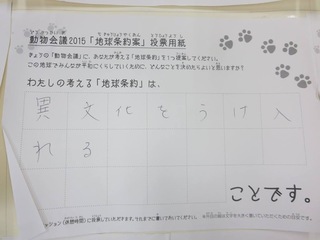 動物会議2015「地球条約案」投票用紙
きょうの「動物会議」に、あなたが考える「地球条約案」を1つ提案してください。
この地球でみんなが平和にくらしていくために、どんなことを決めたらよいと思いますか?
わたしの考える「地球条約案」は、
異文化をうけ入
れる
ことです。